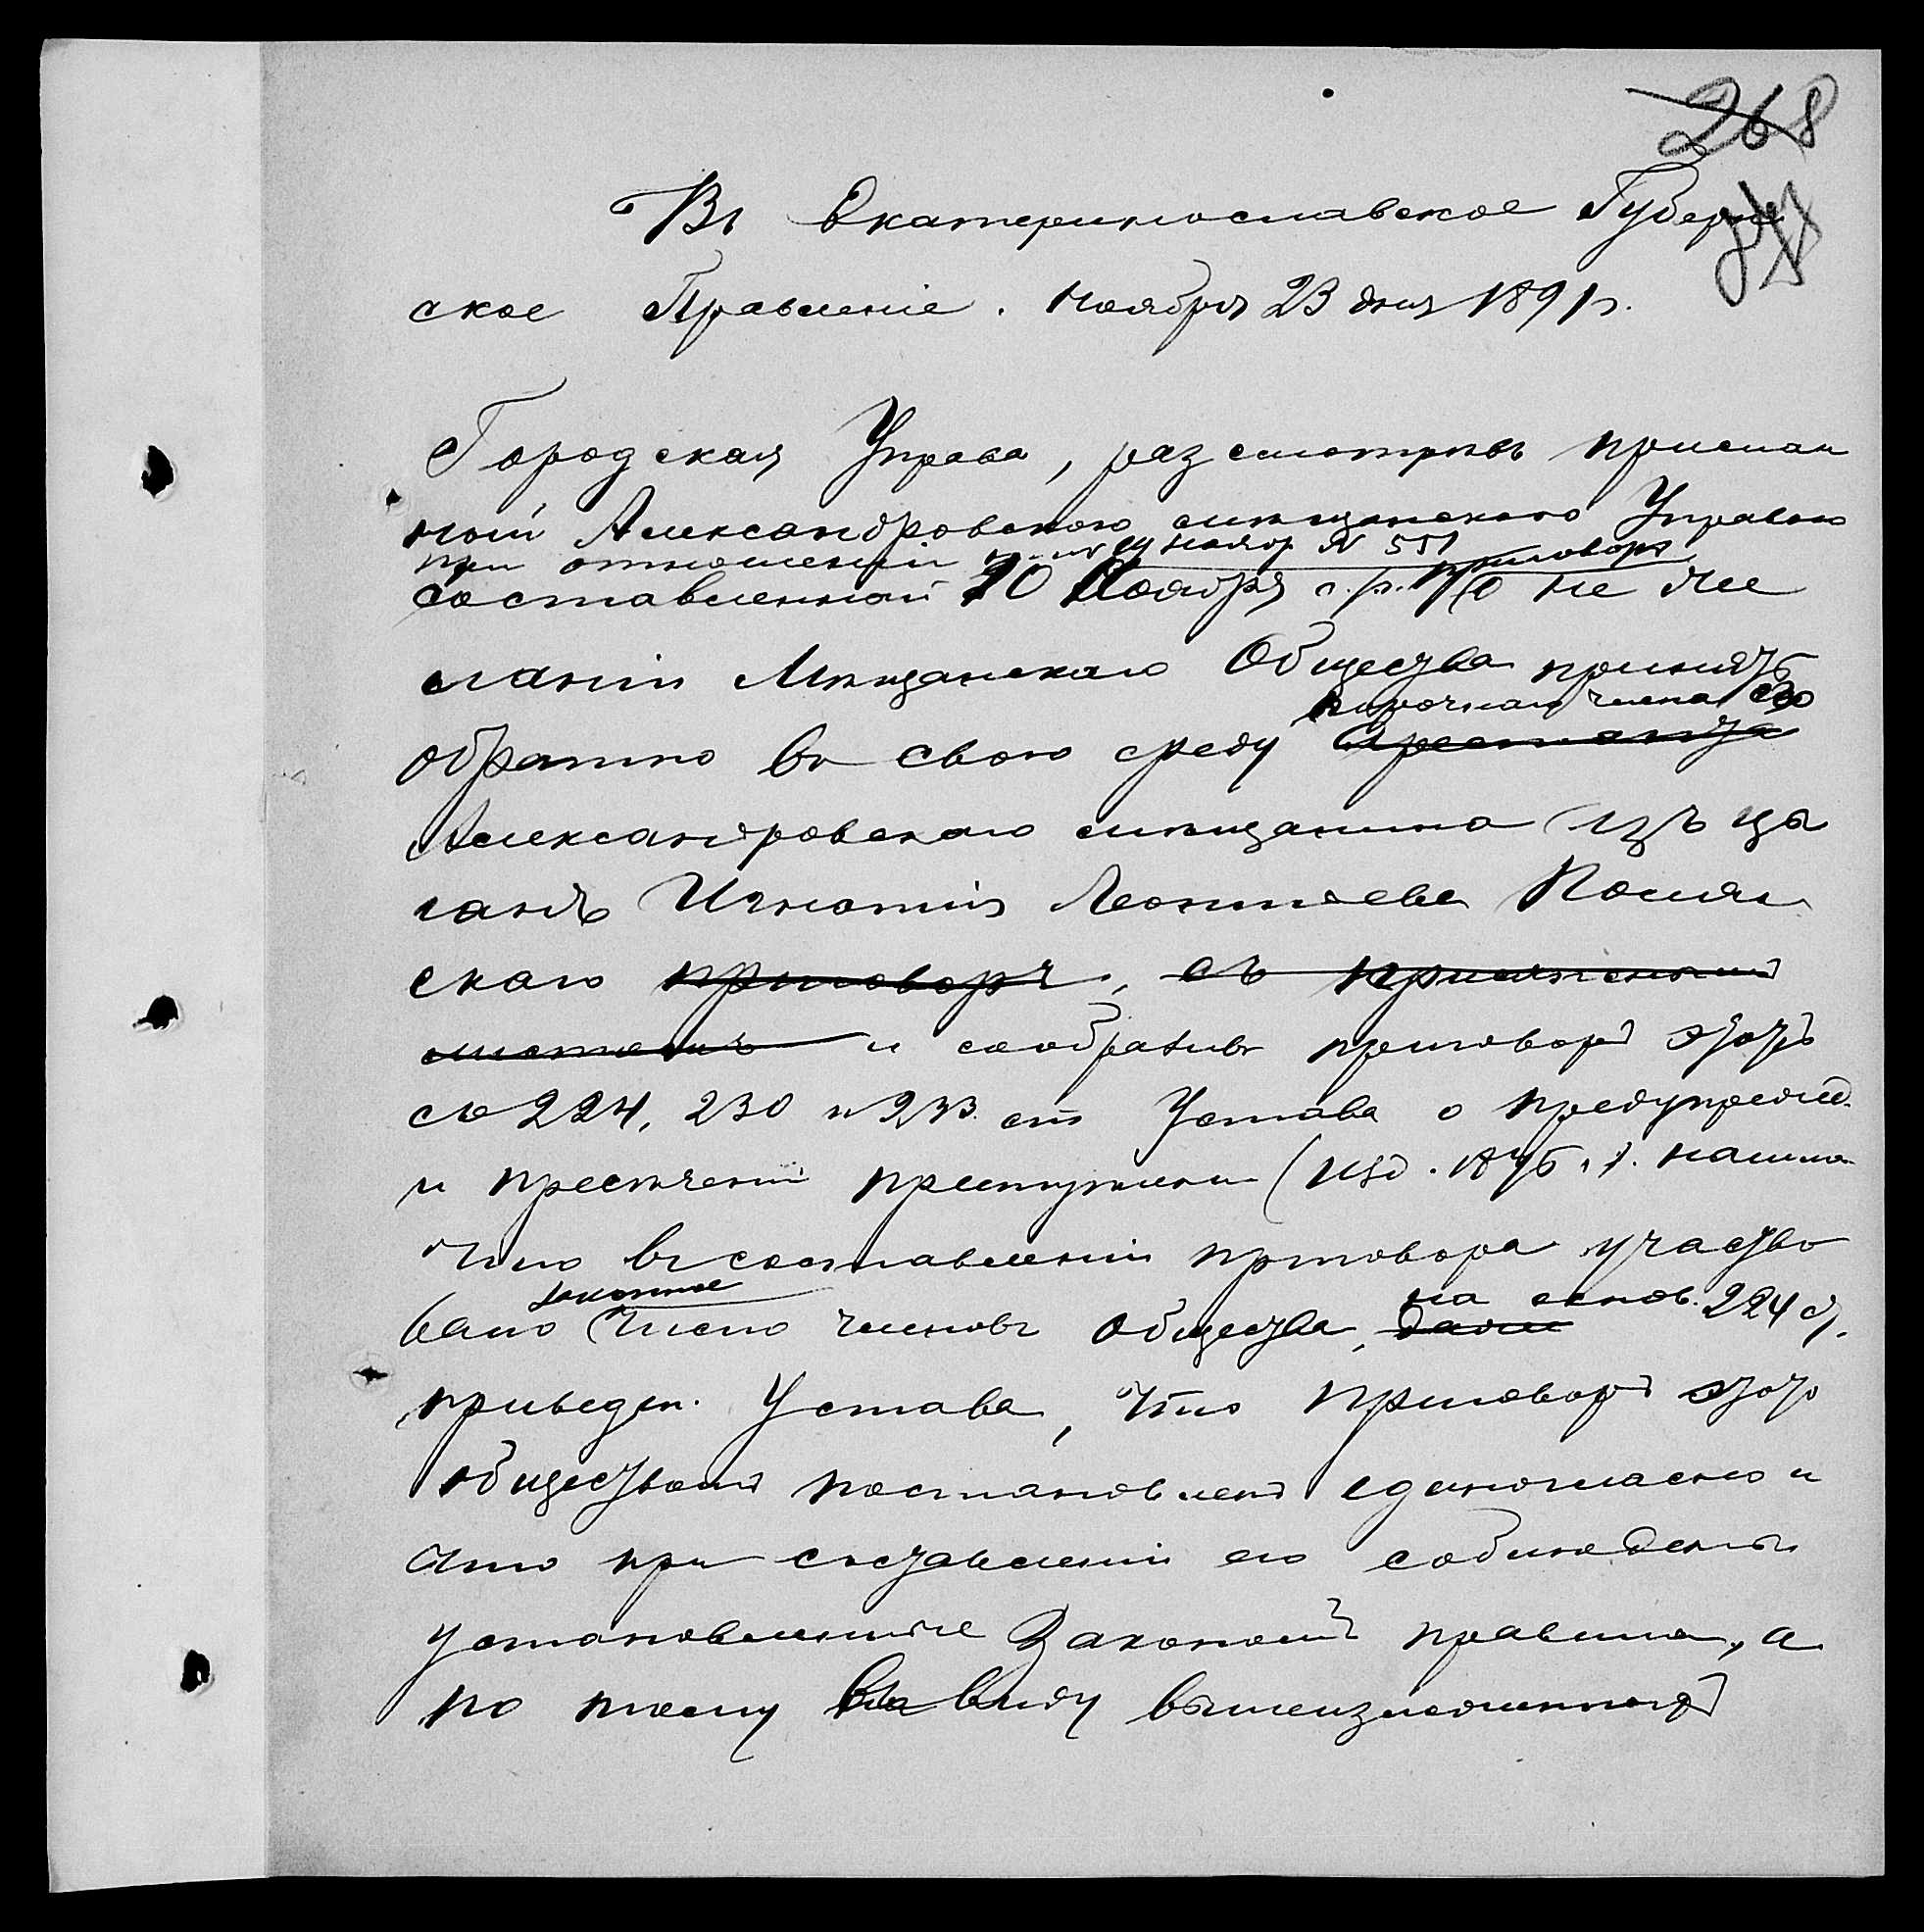 268
Въ Екатеринославское Губерн
ское Правленіе. Ноября 23 дня 1891 г.
Городская Управа, разсмотрѣвъ прислан
ный Александровскою мѣщанскою Управою
при отношеніи 14 ноябр № 551 приговоръ
составленный 20 Ноября с.г. о не же
ланіи Мѣщанскаго Общества принять
порочнаго члена его
обратно въ свою среду арестанта
Александровскаго мѣщанина изъ цы
ганъ Игнатія Леонтьева Полян
скаго приговоръ, съ приложеніем
листовъ и сообразивъ приговоръ этотъ
съ 224, 230 и 233 ст Устава о предупрежд.
и пресѣченіи преступленій (изд. 1876 г. нашла
Что въ составленіи приговора участво
законное
вало число членовъ Общества, на основ. 224 ст.
приведен. Устава, что приговоръ этотъ
обществомъ постановленъ единогласно и
что при составленіи его соблюдены
установленные Закономъ правила, а
по тому въ виду вышеизложеннаго